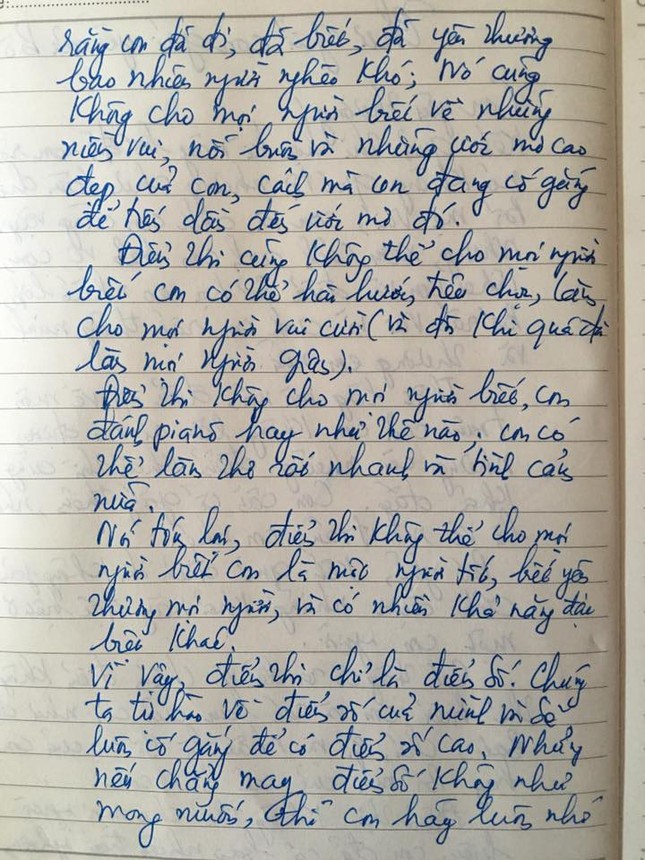 rằng con đã đi, đã biết, đã yêu thương
bao nhiêu người nghèo khó; Nó cũng
không cho mọi người biết về những
niềm vui, nỗi buồn và những ước mơ cao
đẹp của con, cách mà con đang cố gắng
để tiến dần đến ước mơ đó.
Điểm thi cũng không thể cho mọi người
biết con có thể hài hước, tếu chọc, làm
cho mọi người vui cười (và đôi khi quá đà
làm mọi người giận).
Điểm thi không cho mọi người biết, con
đánh pianô hay như thế nào; con có
thể làm thơ rất nhanh và tình cảm
nữa.
Nói tóm lại, điểm thi không thể cho mọi
người biết con là một người tốt, biết yêu
thương mọi người, và có nhiều khả năng đặc
biệt khác.
Vì vậy, điểm thi chỉ là điểm số. Chúng
ta tự hào về điểm số của mình và sẽ
luôn cố gắng để có điểm số cao. Nhưng
nếu chẳng may điểm số không như
mong muốn, thì con hãy luôn nhớ